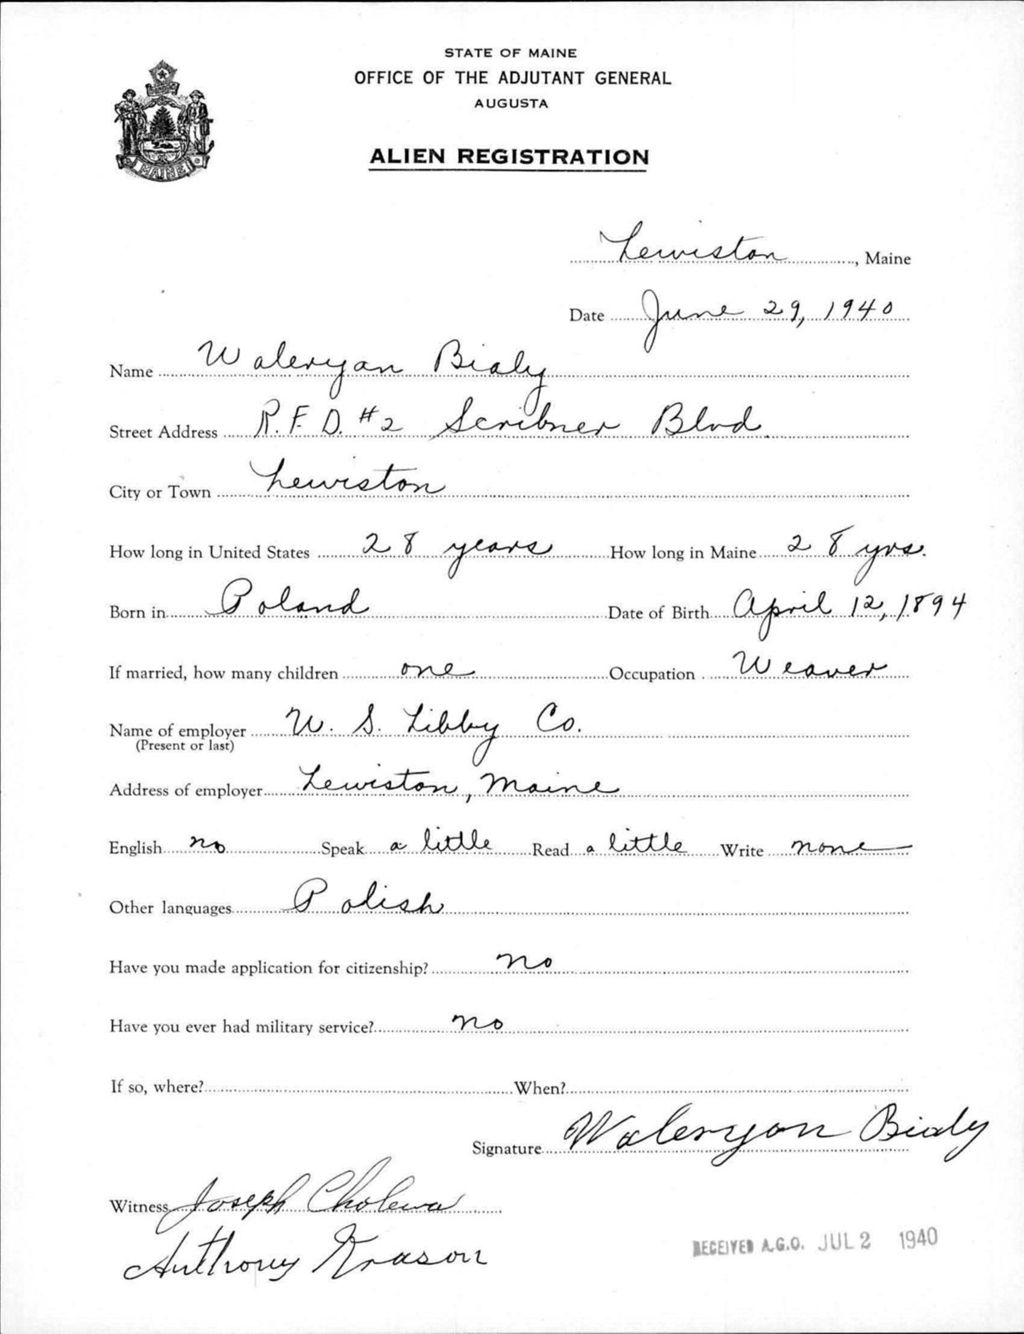 STATE OF MAINE
OFFICE OF THE ADJUTANT GENERAL
AUGUSTA
ALIEN REGISTRATION
MAINE
Lewiston, Maine
Date June 29, 1940
Name Waleryan Bialy
Street Address R.F.D. #2 Scribner Blvd.
City or Town Lewiston
How long in United States 28 years How long in Maine 28 yrs.
Born in Poland Date of Birth April 12, 1894
If married, how many children one Occupation Weaver
Name of employer W. S. Libby Co.
(Present or last)
Address of employer Lewiston, Maine
English no Speak a little Read a little Write none
Other languages Polish
Have you made application for citizenship? no
Have you ever had military service? no
If so, where? When?
Signature Waleryon Bialy
Witness Joseph Cholewa
Anthony Krason
RECEIVED A.G.O. JUL 2 1940